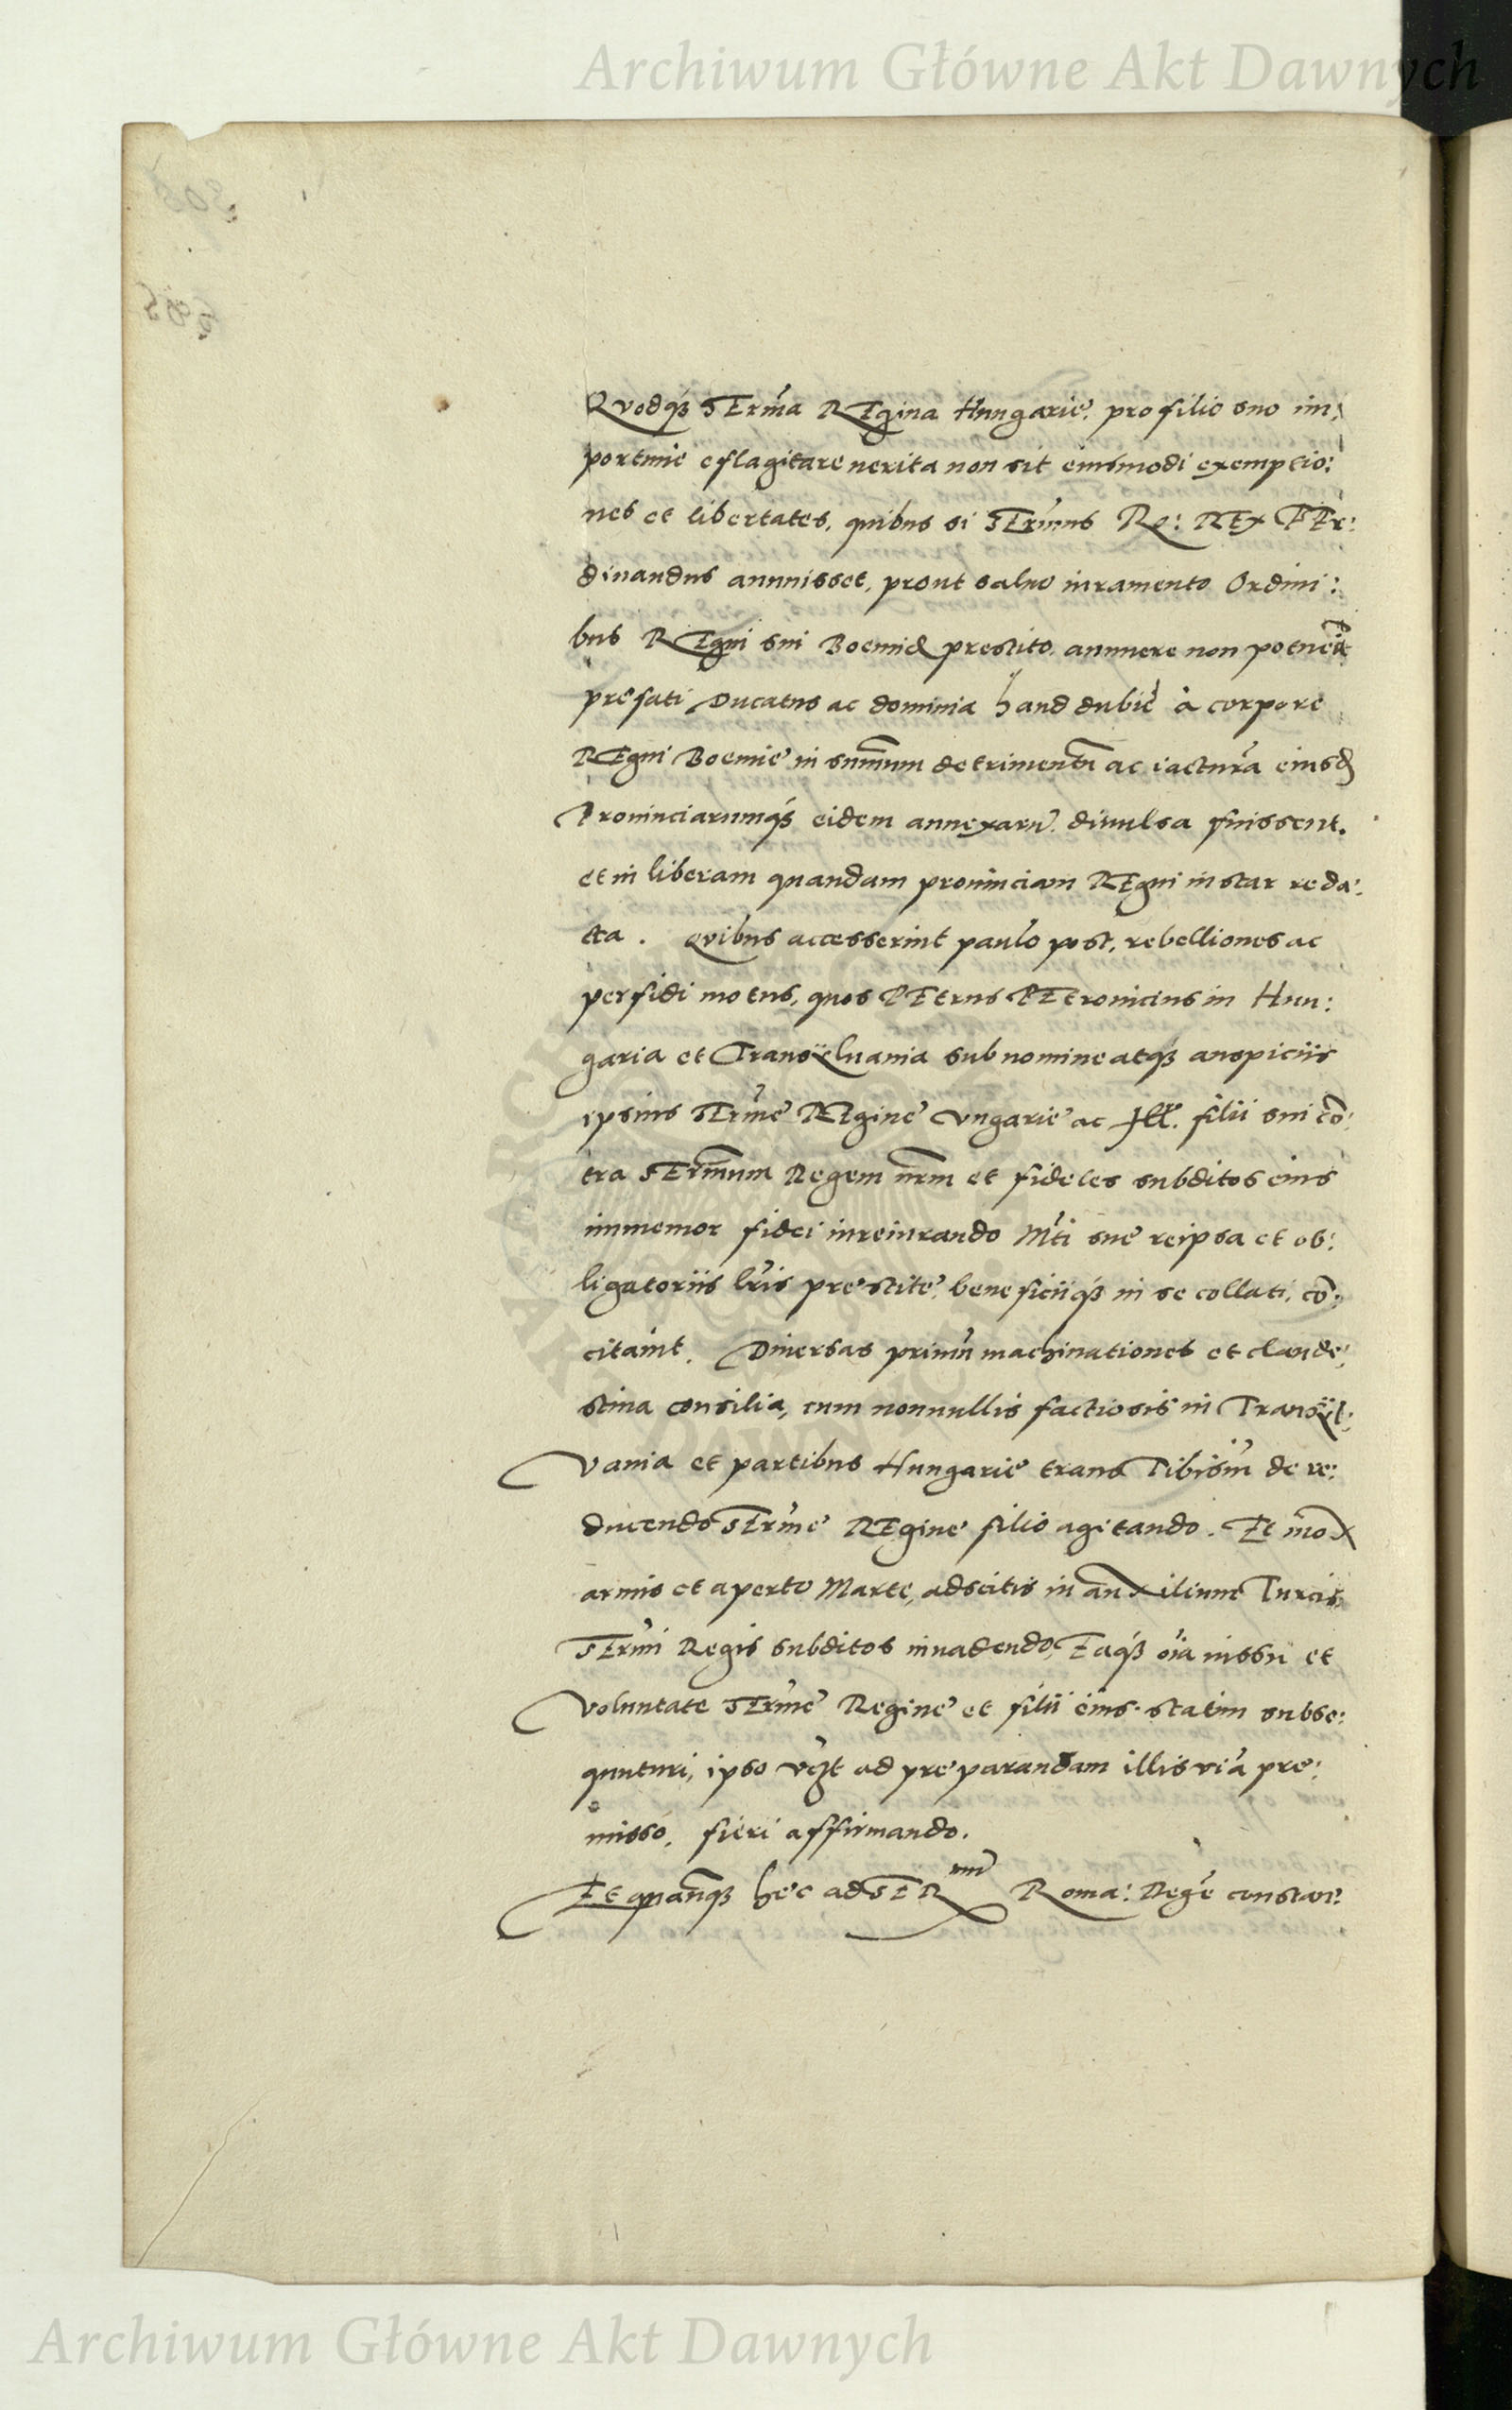 Archiwum Główne Akt Dawnych
Quodq́ꝫ SErm̃a REgina Hungarie, pro filio suo im:
portune efflagitare uerita non sit eiusmodi exemptio:
nes et libertates, quibus si SErm̃us Ro: REx FEr:
dinandus annuisset, prout saluo iuramento Ordini:
bus REgni sui Boemię prestito, annuere non potuerit
prefati Ducatus ac dominia haud dubie à corpore
REgni Boemie in summum detrimentũ ac iacturã eiusd
Prouinciarumq́ꝫ eidem annexarũ diuulsa fuissent,
et in liberam quandam prouinciam REgni instar reda:
cta. Quibus accesserint paulo post, rebelliones ac
perfidi motus, quos PEtrus PEtrouicius in Hun:
garia et Transÿluania sub nomine atqꝫ auspiciis
ipsius SErm̃e REgine Vngarie ac Ill. filii sui cõ:
tra SErm̃um Regem nr̃m et fideles subditos eius
immemor fidei iureiurando Mti sue reipsa et ob:
ligatoriis lr̃is prestite, beneficiiq́ꝫ in se collati, cõ:
citauit. Diuersas primũ machinationes et clande:
stina consilia, cum nonnullis factiosis in Transÿl:
Vania et partibus Hungarie trans Tibiscũ de re:
ducendo SErm̃e REgine filio agitando. Et mox
armis et aperto Marte, adscitis in auxilium Turcis,
SErm̃i Regis subditos inuadendo, Eaq́ꝫ oĩa iussu et
Voluntate SErm̃e Regine et filii eius statim subse:
quuturi, ipso vt ad preparandam illis viã pre:
misso, fieri affirmando.
Et quanq̃ꝫ hec ad SER mũ Roma: Regẽ constan:
Archiwum Główne Akt Dawnych